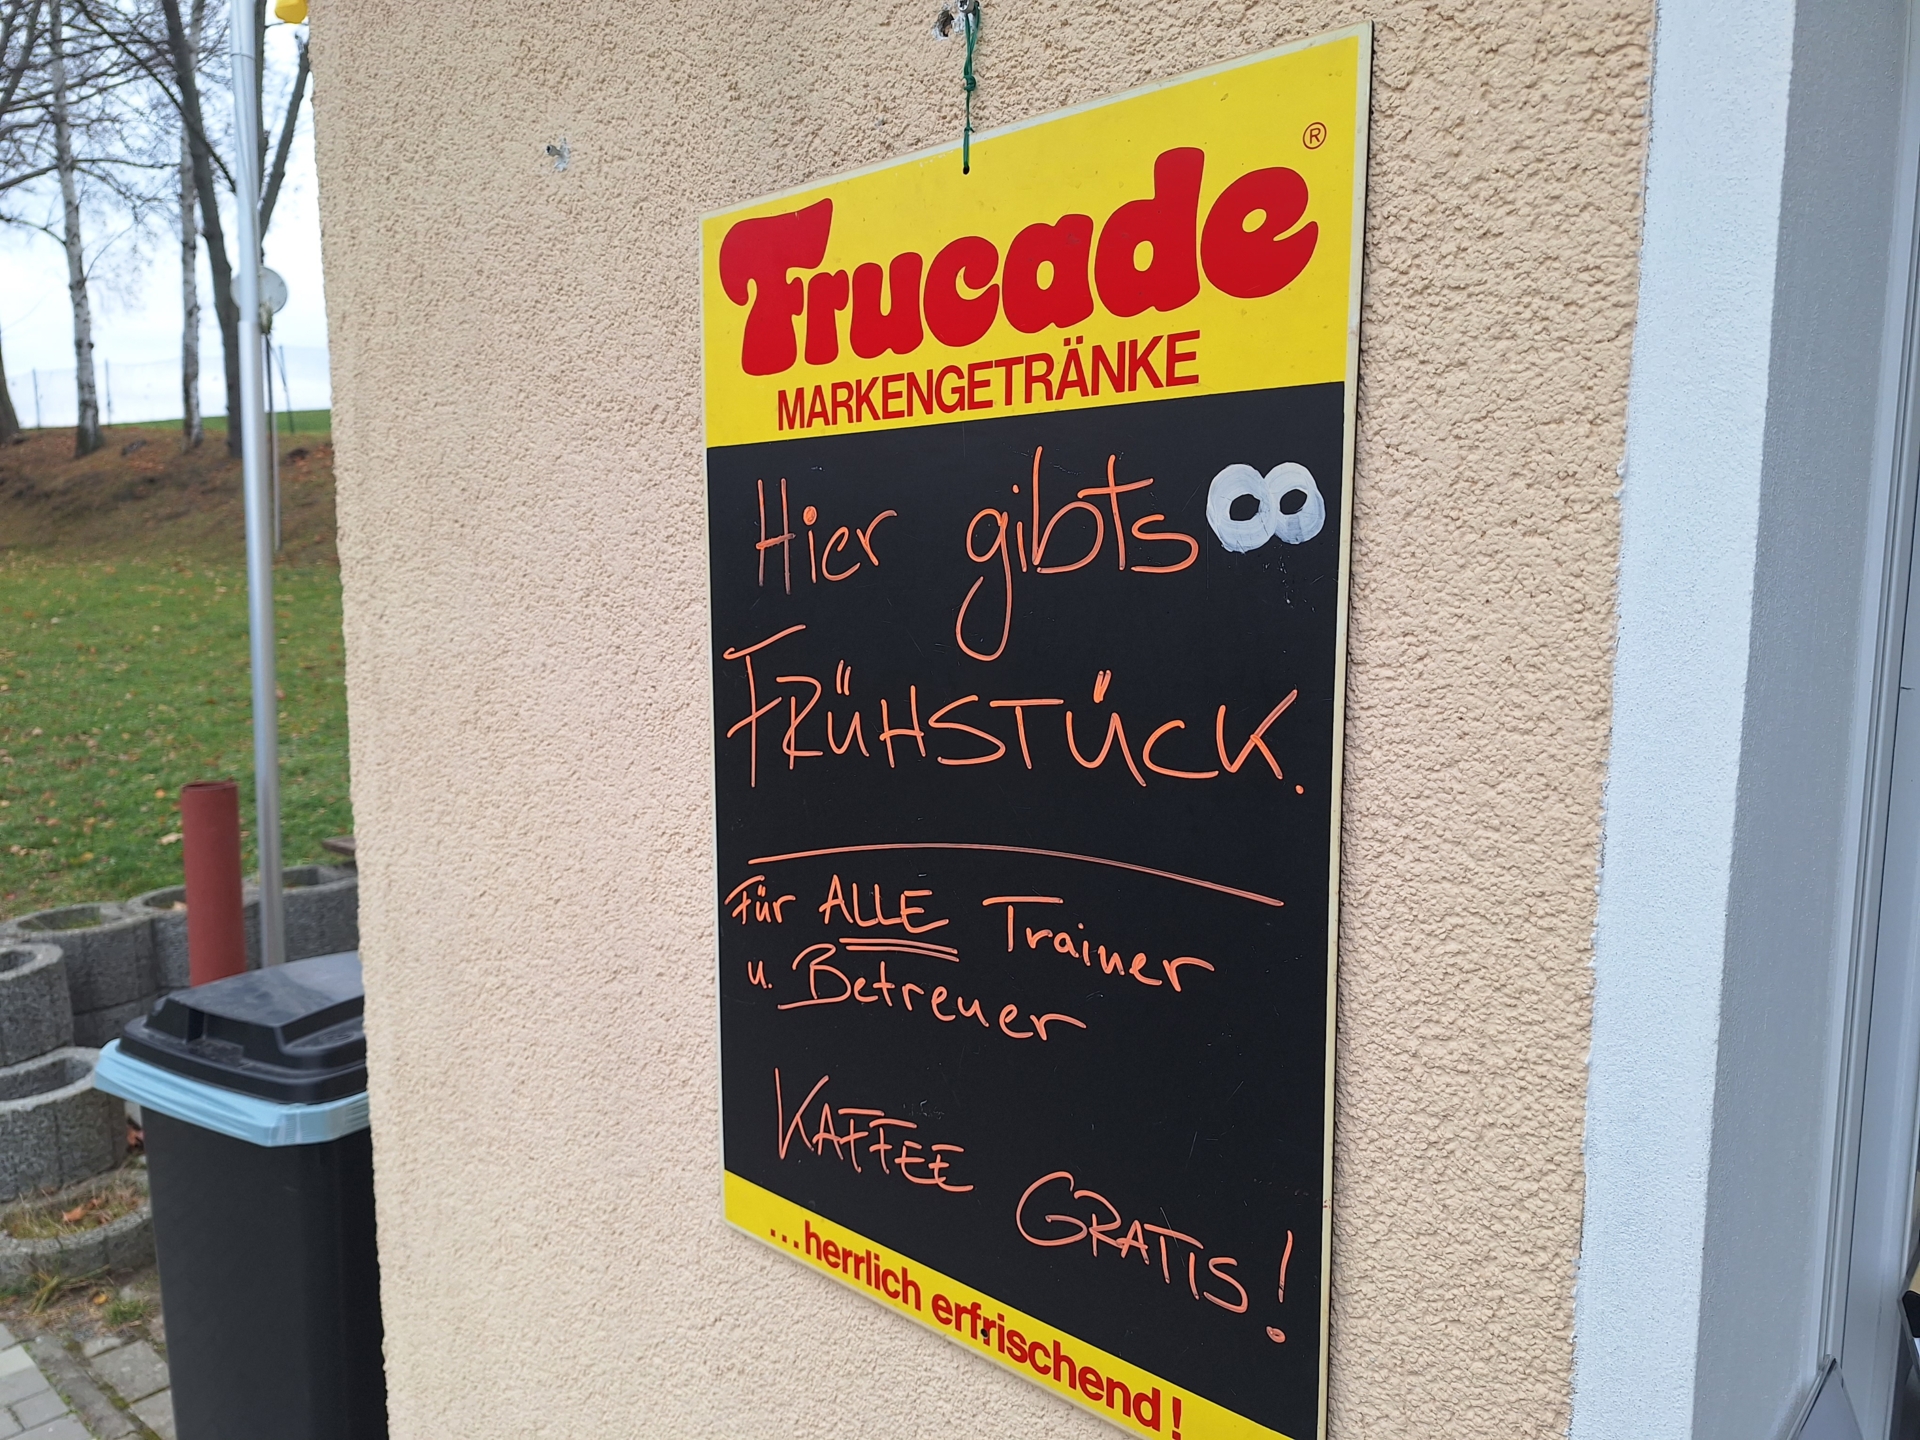 Frucade®
MARKENGETRÄNKE
Hier gibts
FRÜHSTÜCK.
Für ALLE Trainer
u. Betreuer
KAFFEE GRATIS!
...herrlich erfrischend!